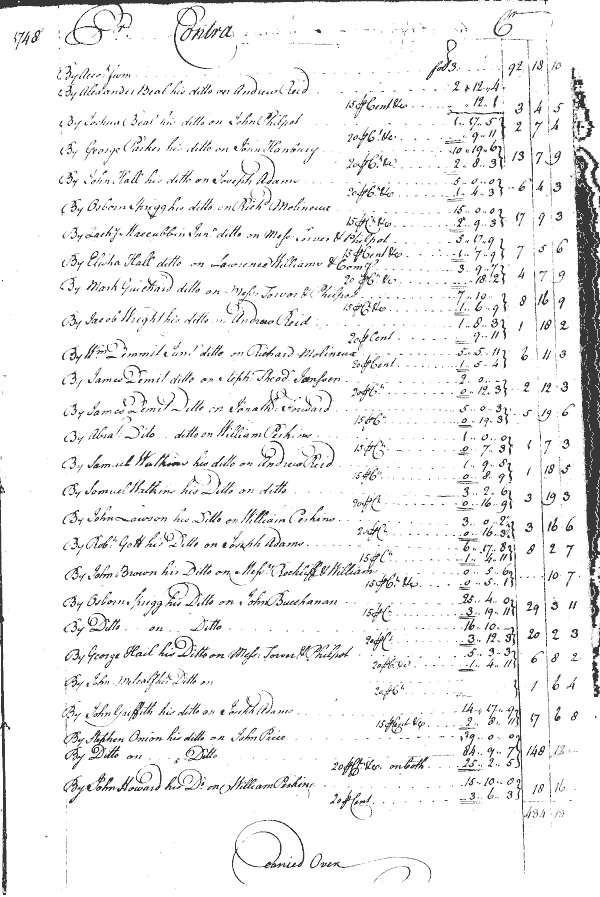 1748 Pr. Contra Cr
By Acco.t from fol 3. 92 18 10
By Alexander Beal his ditto on Andrew Reid 2 .. 12 .. 4
15 ₱ Cent &c 12 . 1 3 4 5
By Joshua Beal his ditto on John Philpot 1 .. 17 .. 5
20 ₱ C.t &c 9 .. 11 2 7 4
By George Parker his ditto on John Hanbury 10 .. 19 .. 6
20 ₱ C.t &c 2 .. 8 .. 3 13 7 9
By John Hall his ditto on Joseph Adams 5 .. 0 .. 0
20 ₱ C.t &c 1 .. 4 .. 3 6 4 3
By Osborn Sprigg his ditto on Rich.d Molineux 15 .. 0 .. 0
15 ₱ C.t &c 2 .. 9 .. 3 17 9 3
By Zach.y Maccubbin Jun.r ditto on Mess.rs Tower & Philpot 5 .. 17 .. 9
15 ₱ Cent &c 1 .. 7 .. 9 7 5 6
By Elisha Hall ditto on Lawrence Williams & Comp.y 3 .. 9 .. 7
20 ₱ C.t &c 18 .. 2 4 7 9
By Mark Guichard ditto on Mess.rs Tower & Philpot 7 .. 10 ..
15 ₱ C.t &c 1 .. 6 .. 9 8 16 9
By Jacob Wright his ditto on Andrew Reid 1 .. 8 .. 3
20 ₱ Cent 9 .. 11 1 18 2
By W.m Demmit Jun.r ditto on Richard Molineux 5 .. 5 .. 11
20 ₱ Cent 1 .. 5 .. 4 6 11 3
By James Demit ditto on Steph.n Theod.r Janssen 2 .. 0 ..
20 ₱ C.t 0 .. 12 .. 3 2 12 3
By James Demit Ditto on Jonath.n Forward 5 .. 0 .. 3
15 ₱ C.t 0 .. 19 .. 3 5 19 6
By Abra.m Dito ditto on William Perkins 1 .. 0 .. 0
15 ₱ C.t 0 .. 7 .. 3 1 7 3
By Samuel Watkins his ditto on Andrew Reid 1 .. 9 .. 8
15 ₱ C.t 0 .. 8 .. 9 1 18 5
By Samuel Watkins his Ditto on ditto 3 .. 2 .. 6
20 ₱ C.t 0 .. 16 .. 9 3 19 3
By John Lawson his Ditto on William Perkins 3 .. 0 .. 2
20 ₱ C.t 0 .. 16 .. 3 3 16 6
By Rob.t Gott his Ditto on Joseph Adams 6 .. 17 .. 8
15 ₱ C.t 1 .. 4 .. 11 8 2 7
By John Brown his Ditto on Mess.rs & William 0 .. 5 .. 6
15 ₱ C.t &c 0 .. 5 .. 1 10 7
By Osborn Sprigg his Ditto on John Buchanan 25 .. 4 .. 0
15 ₱ C.t 3 .. 19 .. 11 29 3 11
By Ditto on Ditto 16 .. 10 ..
20 ₱ C.t 3 .. 12 .. 3 20 2 3
By George Hail his Ditto on Mess.rs Tower & Philpot 5 .. 3 .. 3
20 ₱ C.t &c 1 .. 4 .. 11 6 8 2
By John Metcalf his Ditto on
20 ₱ C.t 1 6 4
By John Griffith his ditto on Joseph Adams 14 .. 17 .. 9
15 ₱ Cent &c 2 .. 8 .. 11 17 6 8
By Stephen Onion his ditto on John Price 39 .. 0 .. 0
By Ditto on Ditto 84 .. 9 .. 7
20 ₱ C.t &c on both 25 .. 2 .. 5 148 12
By John Howard his D.o on William Perkins 15 .. 10 .. 0
20 ₱ Cent 3 .. 6 .. 3 18 16
434 13
Carried Over